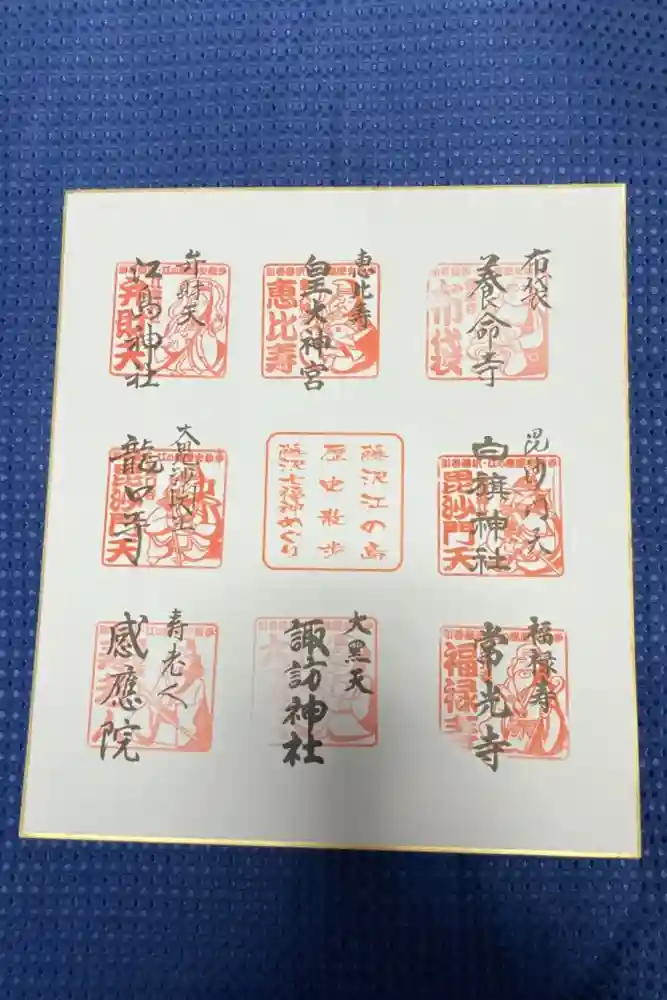 布袋
養命寺
布袋
恵比寿
皇大神宮
恵比寿
弁財天
江島神社
弁財天
毘沙門天
白旗神社
毘沙門天
藤沢江の島
歴史散歩
藤沢七福神めぐり
龍口寺
毘沙門天
福禄寿
常光寺
福禄寿
大黒天
諏訪神社
寿老人
感應院